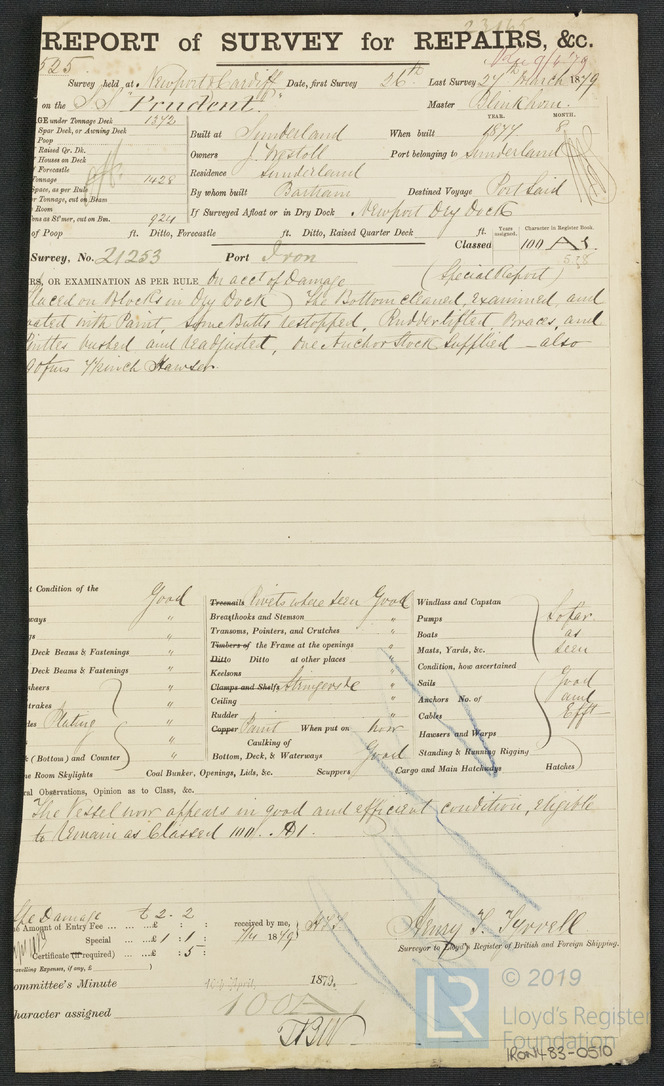 REPORT of SURVEY for REPAIRS, &c.
525.
Survey held at Newport & Cardiff Date, first Survey 26th Last Survey 27th March 1879
on the S S "Prudent" Master Blinkhorn
GE under Tonnage Deck 1372
Spar Deck, or Awning Deck
Poop
Raised Qr. Dk.
Houses on Deck
Forecastle
Tonnage 1428
Space, as per Rule
r Tonnage, cut on Beam
Room
ons as St'mer, cut on Bm. 924
Built at Sunderland When built YEAR. 1877 MONTH. 8
Owners J. Westoll Port belonging to Sunderland
Residence Sunderland
By whom built Bartram Destined Voyage Port Said
If Surveyed Afloat or in Dry Dock Newport Dry Dock
of Poop ft. Ditto, Forecastle ft. Ditto, Raised Quarter Deck ft.
Years assigned. Character in Register Book.
Survey, No. 21253 Port Iron Classed 100 A1.
RS, OR EXAMINATION AS PER RULE On acct of Damage (Special Report)
Placed on Blocks in Dry Dock) The Bottom cleaned, examined, and
coated with Paint, Some Butts restopped, Rudder lifted Braces, and
Pintles bushed and readjusted, one Anchor Stock Supplied - also
90 fms Winch Hawser
t Condition of the Good
ways "
gs "
Deck Beams & Fastenings "
Deck Beams & Fastenings "
heers "
trakes "
des Plating "
"
k (Bottom) and Counter "
ne Room Skylights Coal Bunker, Openings, Lids, &c. Scuppers Cargo and Main Hatchways Hatches
Treenails Rivets where seen Good
Breasthooks and Stemson "
Transoms, Pointers, and Crutches "
Timbers of the Frame at the openings "
Ditto Ditto at other places "
Keelsons "
Clamps and Shelfs Stringers &c "
Ceiling "
Rudder "
Copper Paint When put on now
Caulking of
Bottom, Deck, & Waterways Good
Windlass and Capstan
Pumps
Boats
Masts, Yards, &c.
So far as seen
Condition, how ascertained
Sails
Anchors No. of
Cables
Hawsers and Warps
Standing & Running Rigging
Good and Efft
ral Observations, Opinion as to Class, &c.
The Vessel now appears in good and efficient condition, eligible
to remain as Classed 100. A1.
Damage £2 - 2
he Amount of Entry Fee ... ... £ : :
Special ... ... £ 1 : 1 :
Certificate (if required) ... £ : 5 :
ravelling Expenses, if any, £ )
received by me,
7/4 1879
Henry F. Tyrrell
Surveyor to Lloyd's Register of British and Foreign Shipping.
ommittee's Minute April, 1879.
haracter assigned 100 A1
© 2019
LR
Lloyd's Register
Foundation
IRON483-0510